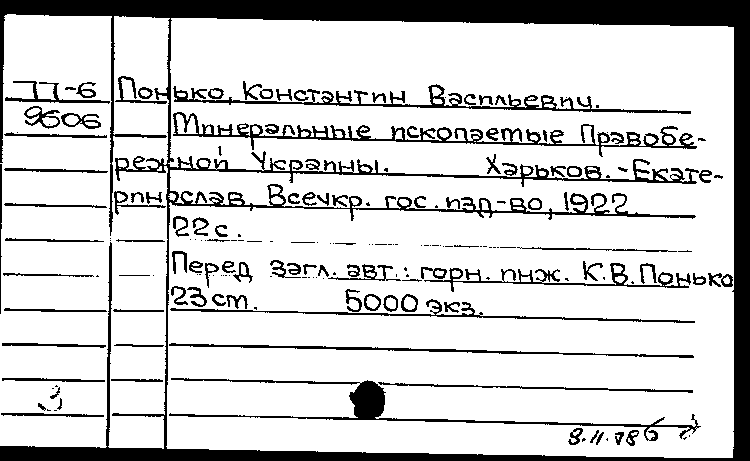 77-6 Понько, Константин Васильевич.
9606 Минеральные ископаемые Правобе-
режной Украины. Харьков.-Екате-
ринослав, Всеукр. гос. изд-во, 1922.
22 с.
Перед загл. авт.: горн. инж. К.В.Понько
23 см. 5000 экз.
3